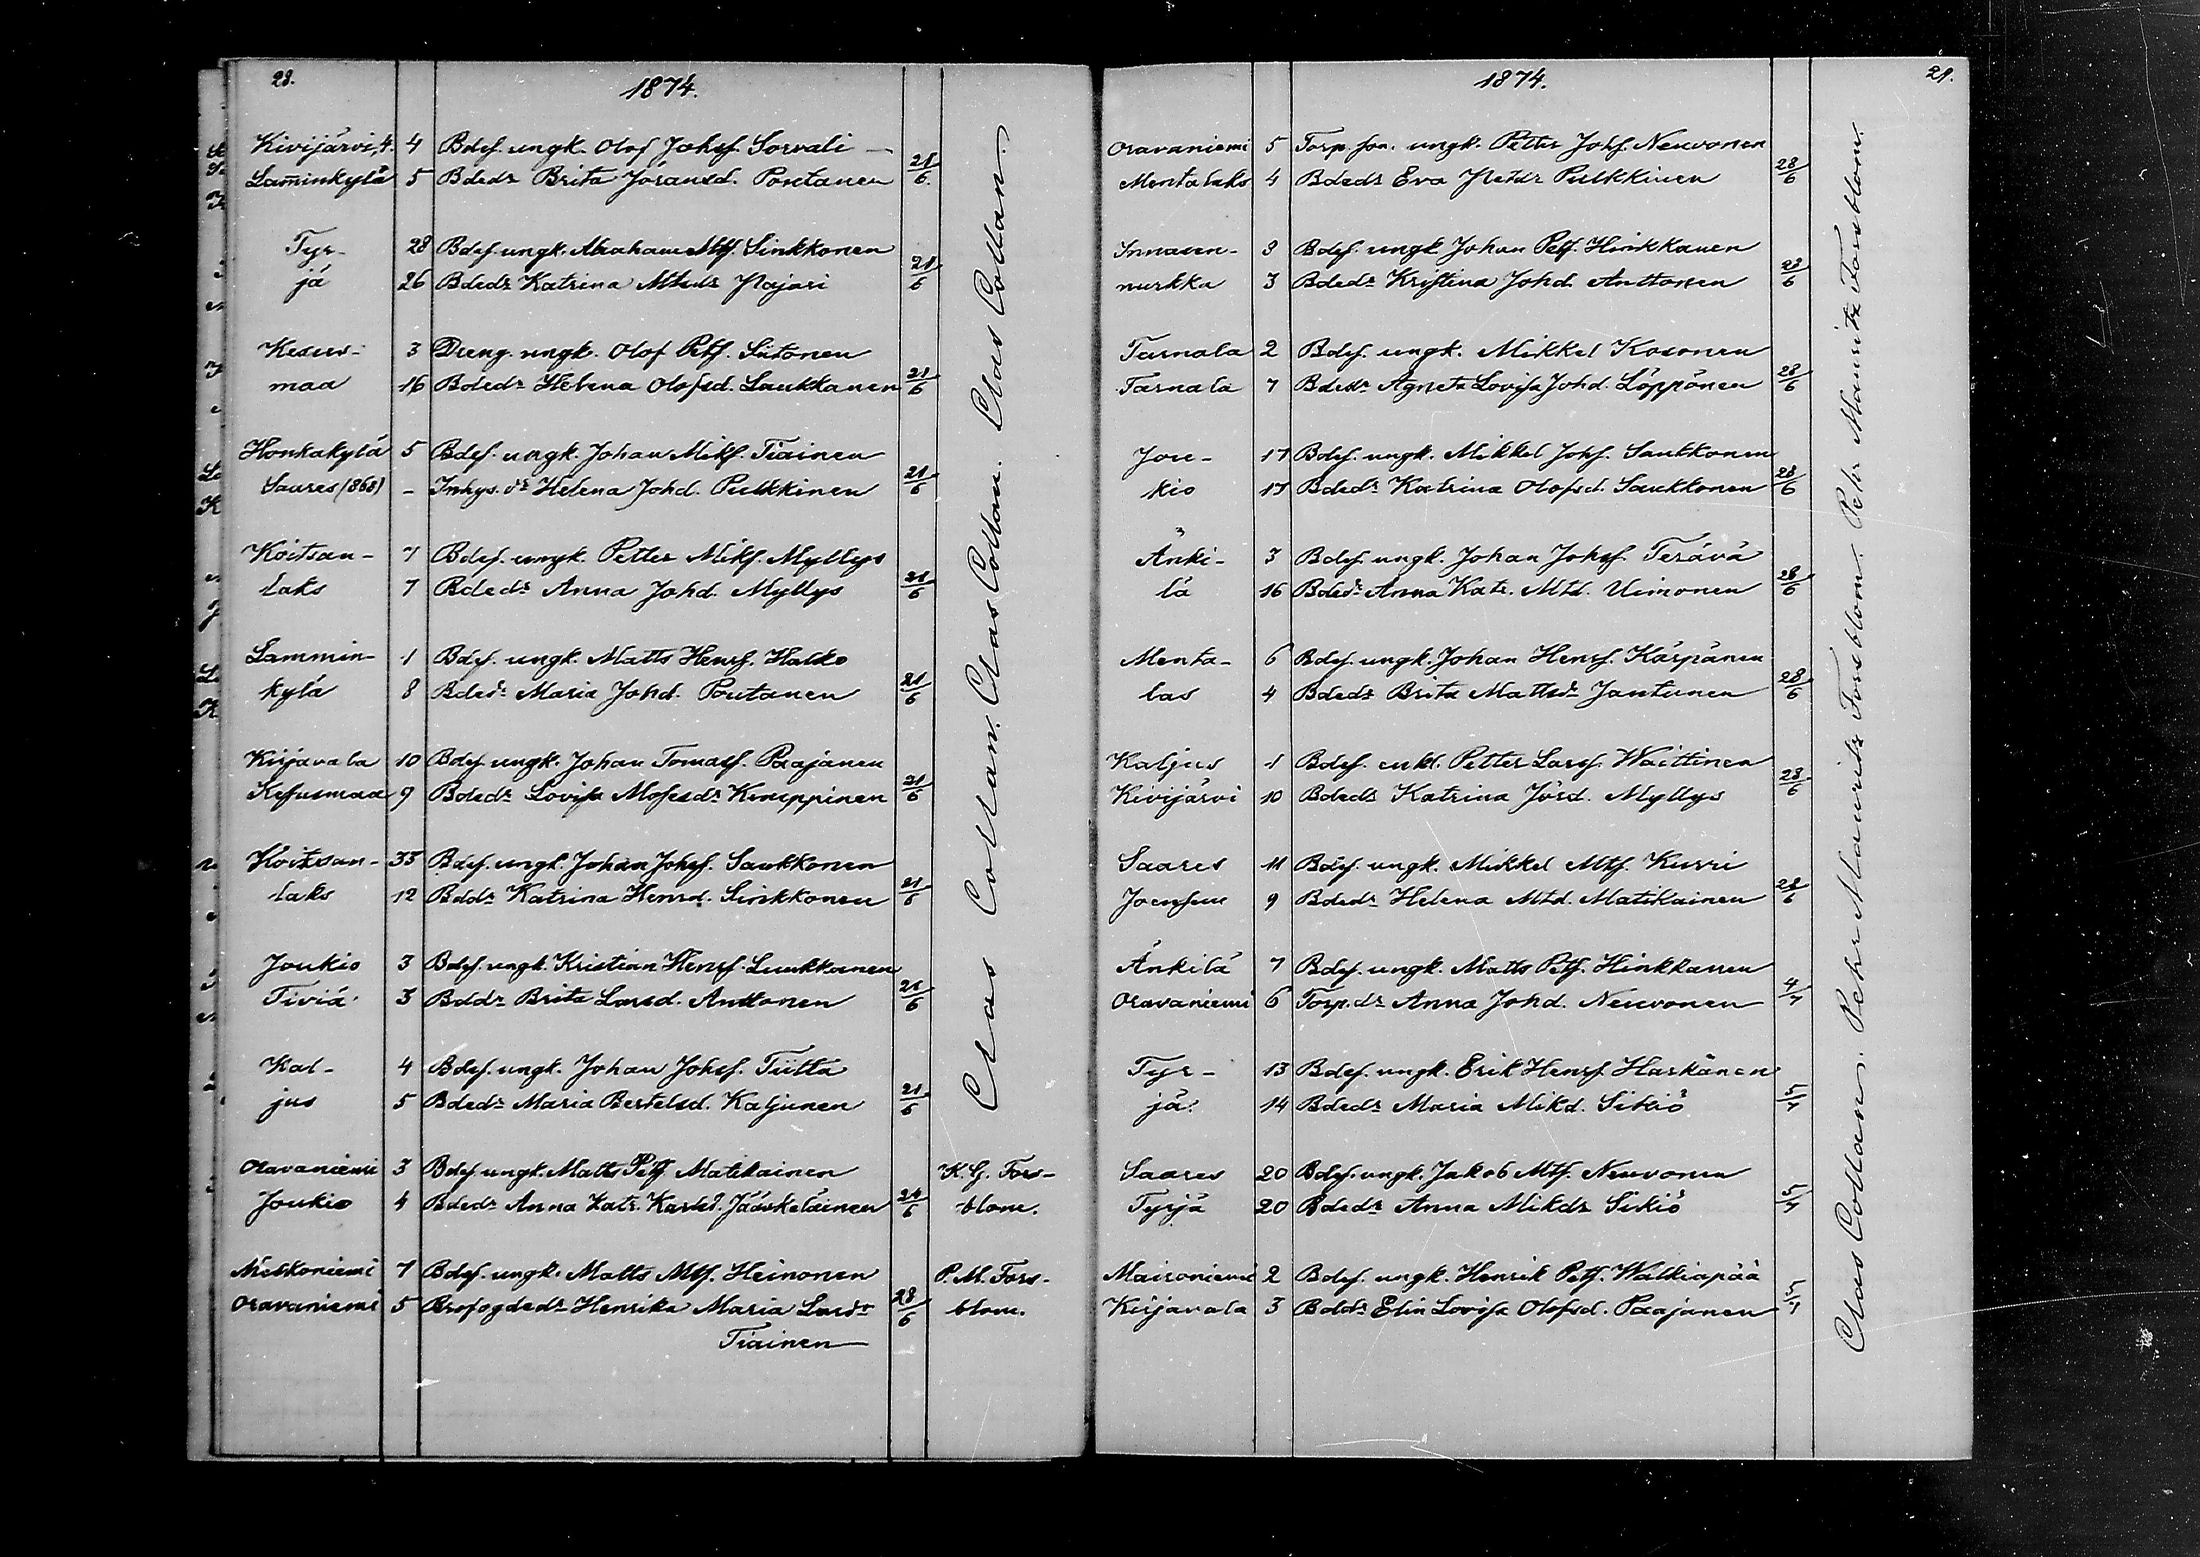 28.
1874.
Kivijärvi, 4. 4 Bdes. ungk. Olof Johsf. Sorvali — 21/6.
Lam̄inkylä 5 Bdedr Brita Göransd. Poutanen
Tyr- 28 Bdes. ungk. Abraham Mtf. Sinkkonen 21/6
jä 26 Bdedr Katrina Mtsdr Pajari
Kesus- 3 Dreng. ungk. Olof Petf. Siitonen
maa 16 Bdedr Helena Olofsd. Laukkanen 21/6
Honkakylä 5 Bdes. ungk. Johan Mikf. Tiainen
Saares (868) - Inhys. dr Helena Johd. Pulkkinen 21/6
Koitsan- 7 Bdes. ungk. Petter Mikf. Myllys
laks 7 Bdedr Anna Johd. Myllys 21/6
Lammin- 1 Bdes. ungk. Matts Hensf. Halko
kylä 8 Bdedr Maria Johd. Poutanen 21/6
Kirjavala 10 Bdes. ungk. Johan Tomasf. Paajanen
Kesusmaa 9 Bdedr Lovisa Mosesdr Kemppinen 21/6
Koitsan- 33 Bdes. ungk. Johan Johsf. Saukkonen
laks 12 Bddr Katrina Hensd. Sinkkonen 21/6
Joukio 3 Bdes. ungk. Kristian Hensf. Luukkanen
Tiviä 3 Bddr Brita Larsd. Anttonen 21/6
Kal- 4 Bdes. ungk. Johan Johsf. Tiitta
jus 5 Bdedr Maria Bertelsd. Kaljunen 21/6
Clas Collan. Clas Collan. Clas Collan.
Oravaniemi 3 Bdes. ungk. Matts Petf. Matikainen K. G. Fors-
Joukio 4 Bdedr Anna Katr. Karlsd. Jääskeläinen 24/6 blom.
Melkoniemi 7 Bdes. ungk. Matts Mtf. Heinonen P. M. Fors-
Oravaniemi 5 Brofogdedr Henrika Maria Larsdr 28/6 blom.
Tiainen
29.
1874.
Oravaniemi 5 Torp. son. ungk. Petter Johf. Neuvonen
Mentalaks 4 Bdedr Eva Petdr Pulkkinen 28/6
Innasen- 3 Bdes. ungk. Johan Petf. Hinkkanen
nurkka 3 Bdedr Kristina Johd. Anttonen 28/6
Tarnala 2 Bdes. ungk. Mikkel Kosonen
Tarnala 7 Bdedr Agneta Lovisa Johd. Löppönen 28/6
Jou- 17 Bdes. ungk. Mikkel Johf. Saukkonen
kio 17 Bdedr Katrina Olofsd. Saukkonen 28/6
Änki- 3 Bdes. ungk. Johan Johsf. Terävä
lä 16 Bdedr Anna Katr. Mtd. Uimonen 28/6
Menta- 6 Bdes. ungk. Johan Hensf. Kärpänen
las 4 Bdedr Brita Mattsdr Jantunen 28/6
Kaljus 1 Bdes. enkl. Petter Larsf. Waittinen
Kivijärvi 10 Bdedr Katrina Jörd. Myllys 28/6
Saares 11 Bdes. ungk. Mikkel Mtf. Kurri
Joensuu 9 Bdedr Helena Mtd. Matikainen 28/6
Änkilä 7 Bdes. ungk. Matts Petf. Hinkkanen
Oravaniemi 6 Torp. dr Anna Johd. Neuvonen 4/7
Tyr- 13 Bdes. ungk. Erik Hensf. Harkänen
jä 14 Bdedr Maria Mikd. Sikiö 5/7
Saares 20 Bdes. ungk. Jakob Mtf. Neuvonen
Tyrjä 20 Bdedr Anna Mikdr Sikiö 5/7
Maironiemi 2 Bdes. ungk. Henrik Petf. Walkiapää
Kirjavala 3 Bddr Elin Lovisa Olofsd. Paajanen 5/7
Clas Collan. Pehr Mauritz Forsblom. Petr Mauritz Forsblom.